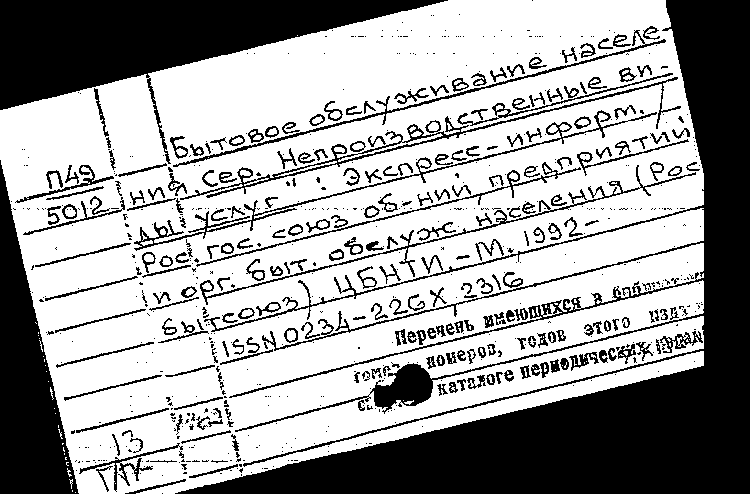 Бытовое обслуживание населе-
П49 ния. Сер. „Непроизводственные ви-
5012 ды услуг“ : Экспресс-информ. /
Рос. гос. союз об-ний, предприятий
и орг. быт. обслуж. населения (Рос
бытсоюз). ЦБНТИ. - М., 1992-
ISSN 0234-226X, 2316
Перечень имеющихся в
номеров, годов этого
каталоге периодических
13